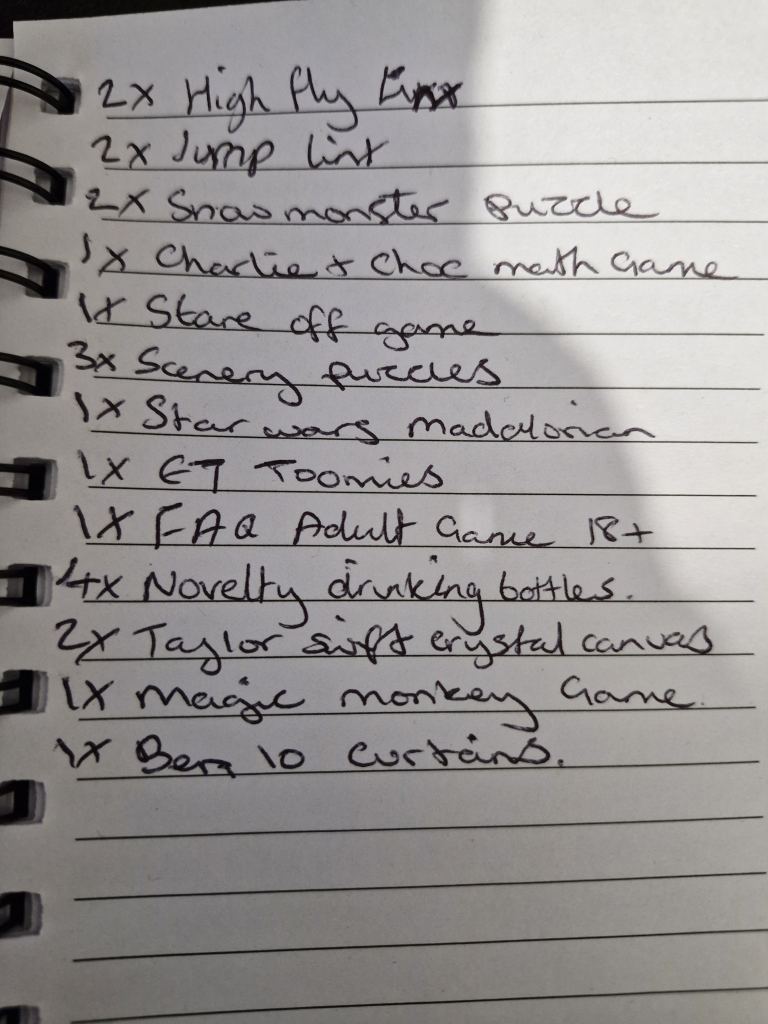 2x High fly Linx
2x Jump linx
2x Snowmonster puzzle
1x Charlie + Choc math Game
1x Stare off game
3x Scenery puzzles
1x Star wars madalorian
1x ET Toomies
1x FAQ Adult Game 18+
4x Novelty drinking bottles.
2x Taylor swift crystal canvas
1x Magic monkey Game.
1x Ben 10 curtains.